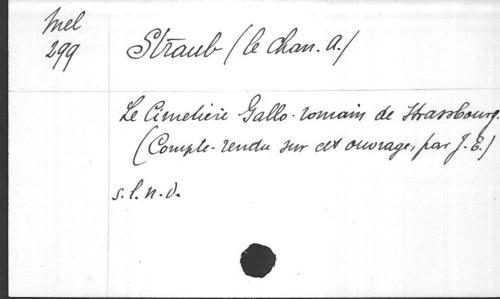 Mel
299
Straub (le chan. A.)
Le Cimetière Gallo-romain de Strassbourg.
(Compte-rendu sur cet ouvrage, par J. E.)
s. l. n. d.